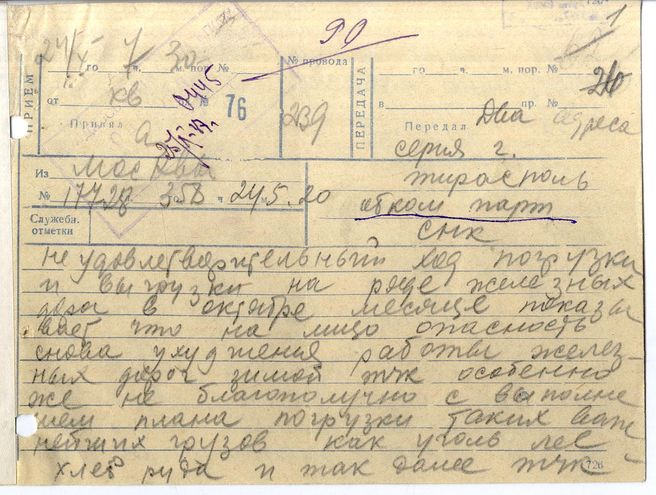 90
1
24/X го 7 ч. 30 м. пор. №
№ провода
239
го ч. м. пор. №
20
ПРИЁМ
от хв № 76
0445
Принял
ПЕРЕДАЧА
в пр. №
Передал Два адреса
серия г.
Из Москвы
тирасполь
№ 17728 358 24 5.20
обком парт
Служебн. отметки
снк
неудовлетворительный ход погрузки
и выгрузки на ряде железных
дорог в октябре месяце показы
вает что на лицо опасность
снова ухудшения работы желез-
ных дорог зимой тчк особенно
же не благополучно с выполне
нием плана погрузки таких важ
нейших грузов как уголь лес
хлеб руда и так далее тчк
726